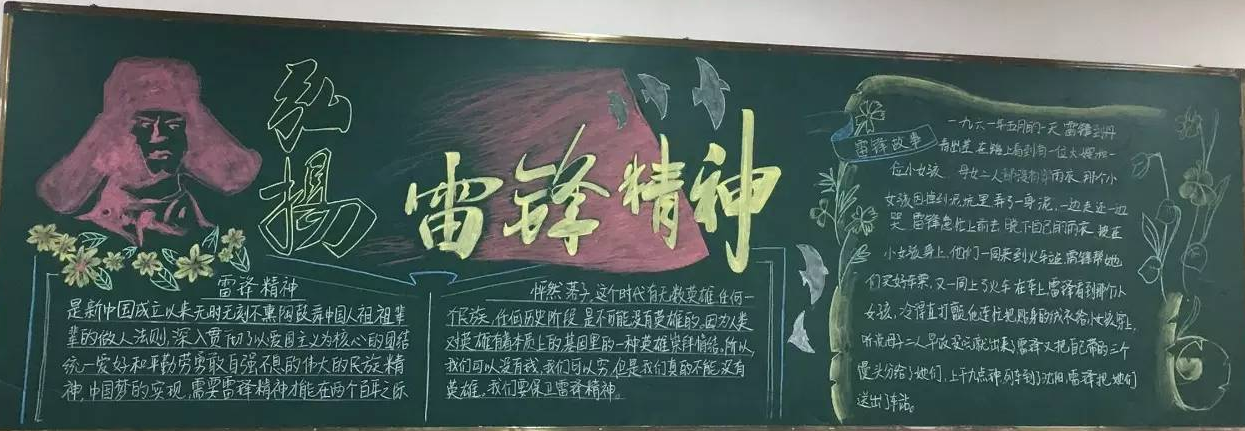 弘揚
雷锋精神
雷锋精神
是新中国成立以来无时无刻不熏陶鼓舞中国人祖祖辈
辈的做人法则,深入贯彻了以爱国主义为核心的团结
统一爱好和平勤劳勇敢自强不息的伟大的民族精
神,中国梦的实现,需要雷锋精神才能在两个百年之际
怦然落子,这个时代有无数英雄,任何一
个民族,任何历史阶段是不可能没有英雄的,因为人类
对英雄有着本质上的基因里的一种英雄崇拜情结,所以
我们可以没有钱,我们可以穷,但是我们真的不能没有
英雄。我们要保卫雷锋精神。
雷锋故事
一九六一年五月的一天,雷锋到丹
看出差,在路上看到有一位大嫂和一
位小女孩 母女二人都没有穿雨衣,那个小
女孩因掉到泥坑里弄了一身泥,一边走还一边
哭,雷锋急忙上前去脱下自己的雨衣 披在
小女孩身上,他们一同来到火车站,雷锋帮她
们买好车票,又一同上了火车在车上,雷锋看到那个小
女孩,冷得直打颤,他连忙把贴身的绒衣给小女孩穿上,
听说母女二人早饭没吃就出来,雷锋又把自己带的三个
馒头分给了她们,上午九点钟,列车到了沈阳,雷锋把她们
送出了车站。